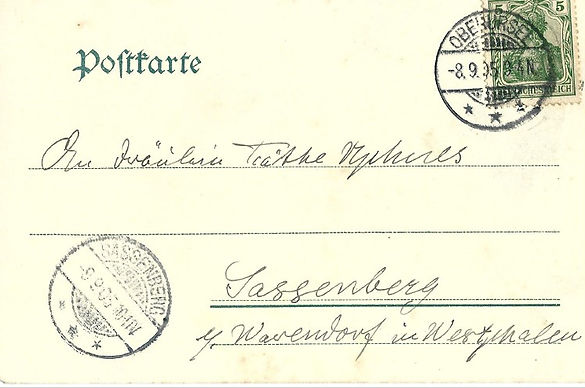 5 5
OBERURSEL
-8.9.05 9-
REICH
Postkarte
An Fräulein Käthe
SASSENBERG
-9.9.05
Sassenberg
b/ Warendorf in Westphalen